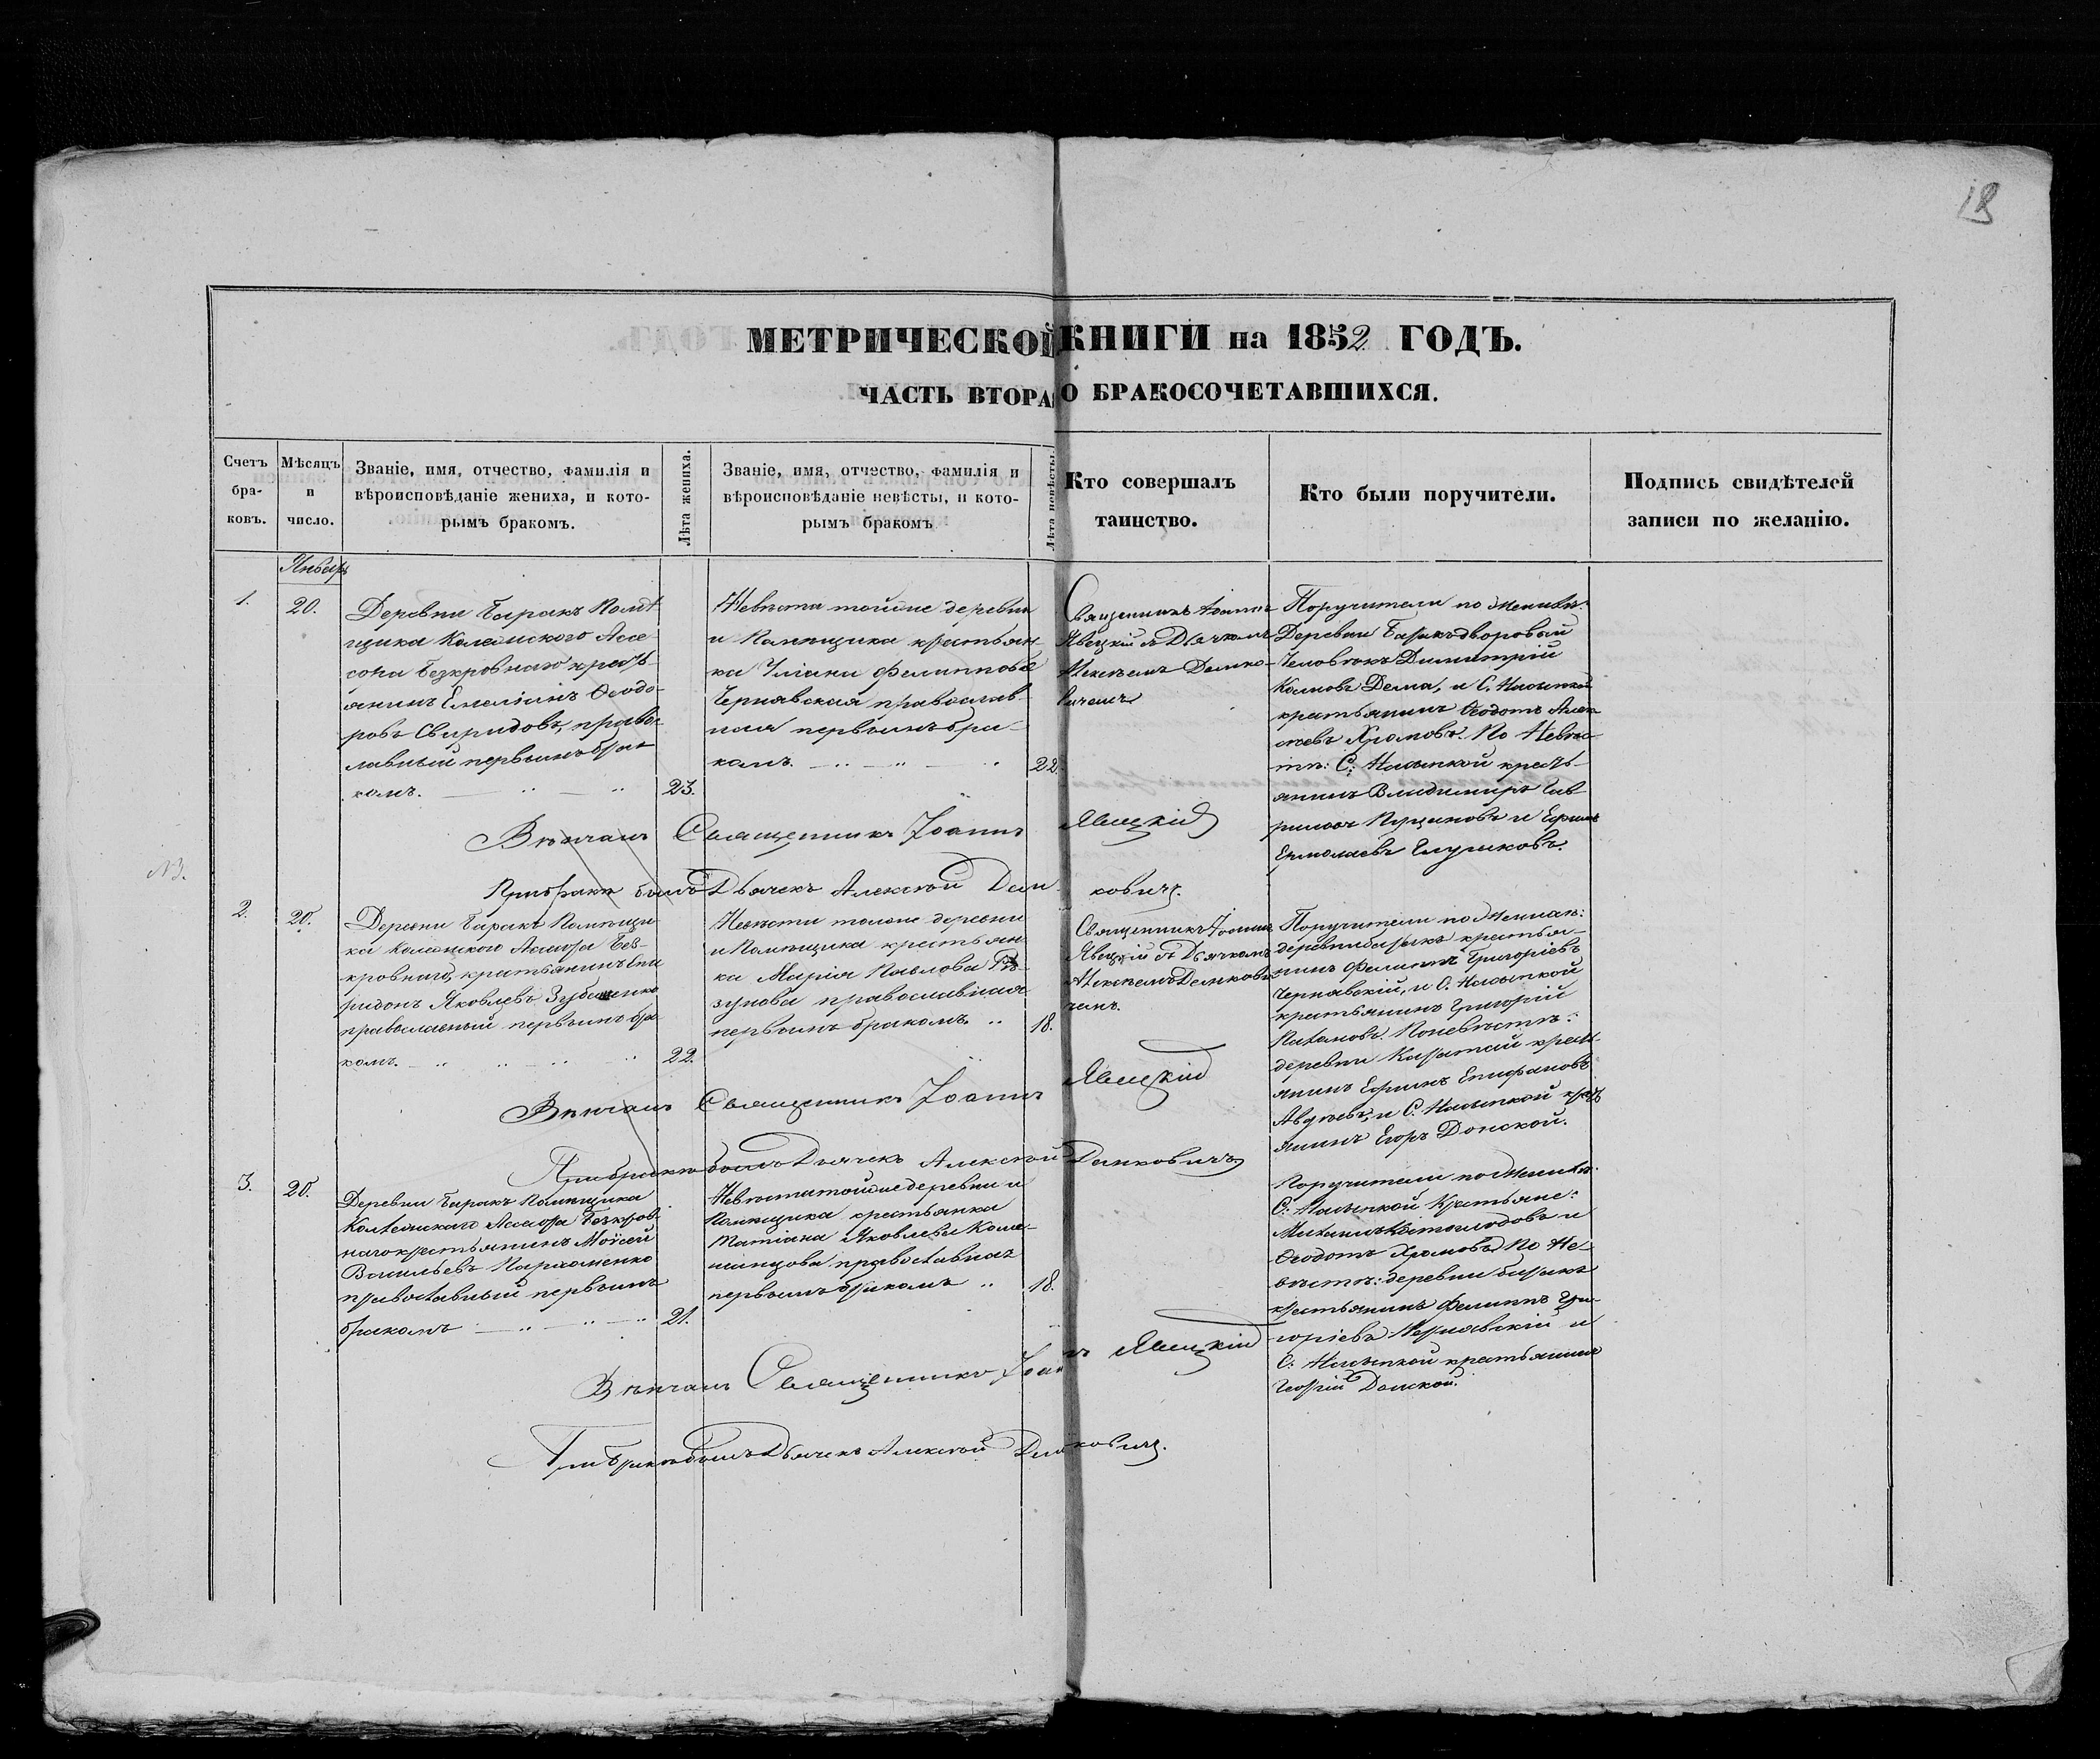 18
МЕТРИЧЕСКОЙ КНИГИ на 1852 ГОДЪ.
ЧАСТЬ ВТОРАЯ О БРАКОСОЧЕТАВШИХСЯ.
Счетъ
бра-
ковъ.
Мѣсяцъ
и
число.
Званіе, имя, отчество, фамилія и
вѣроисповѣданіе жениха, и кото-
рымъ бракомъ.
Лѣта жениха.
Званіе, имя, отчество, фамилія и
вѣроисповѣданіе невѣсты, и кото-
рымъ бракомъ
Лѣта невѣсты.
Кто совершалъ
таинство.
Кто были поручители.
Подпись свидѣтелей
записи по желанію.
Январь
1.
20.
Деревни Баракъ Помѣ
щика Колежского Ассе
сора Безкровнаго крать
янинъ Емеліянъ Ѳеодо-
ровъ Свиридовъ, право-
лавный первымъ бра
комъ.
23.
Невѣста тойже деревни
и Помѣщика кратьян-
ка Филиппова
Чернявская православ-
ная первымъ бра-
комъ.
22.
Священникъ Іоаннъ
Явецкій съ Дьячкомъ
Алексѣемъ Демко-
вичемъ
Поручители по Женихѣ:
Деревни Баракъ дворовый
Человѣкъ Димитрій
Дема, и С.
кратьянинъ Ѳеодотъ Алек
Храмовъ. По Невѣс-
тѣ: С: крать-
янинъ Владимиръ Гав
и Ефимъ
Ермолаевъ
Вѣнчалъ Священникъ Іоаннъ Явецкій
№3.
При бракѣ былъ Дьячекъ Алексѣй Демковичъ.
2.
20.
Деревни Баракъ Помѣщи-
ка Колежского Ассесора Без-
кровнаго, кратьянинъ Спи
ридонъ Яковлевъ Зубенко
православный первымъ бра
комъ.
22.
Невѣста тояже деревни
и Помѣщика кратьян
ка Марія Павлова
православная
первымъ бракомъ.
18.
Священникъ Іоаннъ
Явецкій съ Дьячкомъ
Алексѣемъ Демкови
чемъ.
Поручители по Женихѣ:
деревни Баракъ кратья-
нинъ Филиппъ Григоріевъ
Чернявскій, и С.
кратьянинъ Григорій
По невѣстѣ:
деревни крать-
янинъ Ефимъ Епифановъ
и С. крать
янинъ Егоръ Донской.
Вѣнчалъ Священникъ Іоаннъ Явецкій
При бракѣ былъ Дьячекъ Алексѣй Демковичъ
3.
20.
Деревни Баракъ Помѣщика
Колежскаго Ассесора Безкров-
наго кратьянинъ Моѵсей
Васильевъ Пархоменко
православный первымъ
бракомъ
21.
Невѣста тойже деревни и
Помѣщика кратьянка
Татіана Яковлева
православная
первымъ бракомъ
18.
Поручители по Женихѣ:
С: Кратьяне:
и
Ѳеодотъ Храмовъ По Не-
вѣстѣ: деревни Баракъ
кратьянинъ Филиппъ Гри-
горіевъ Чернявскій и
С: кратьянинъ
Георгій Донской.
Вѣнчалъ Священникъ Іоаннъ Явецкій
При бракѣ былъ Дьячекъ Алексѣй Демковичъ.